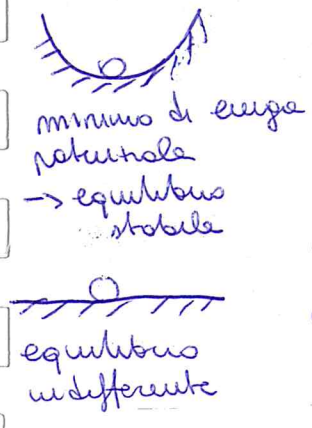 minimo di energia
potenziale
→ equilibrio
stabile
equilibrio
indifferente